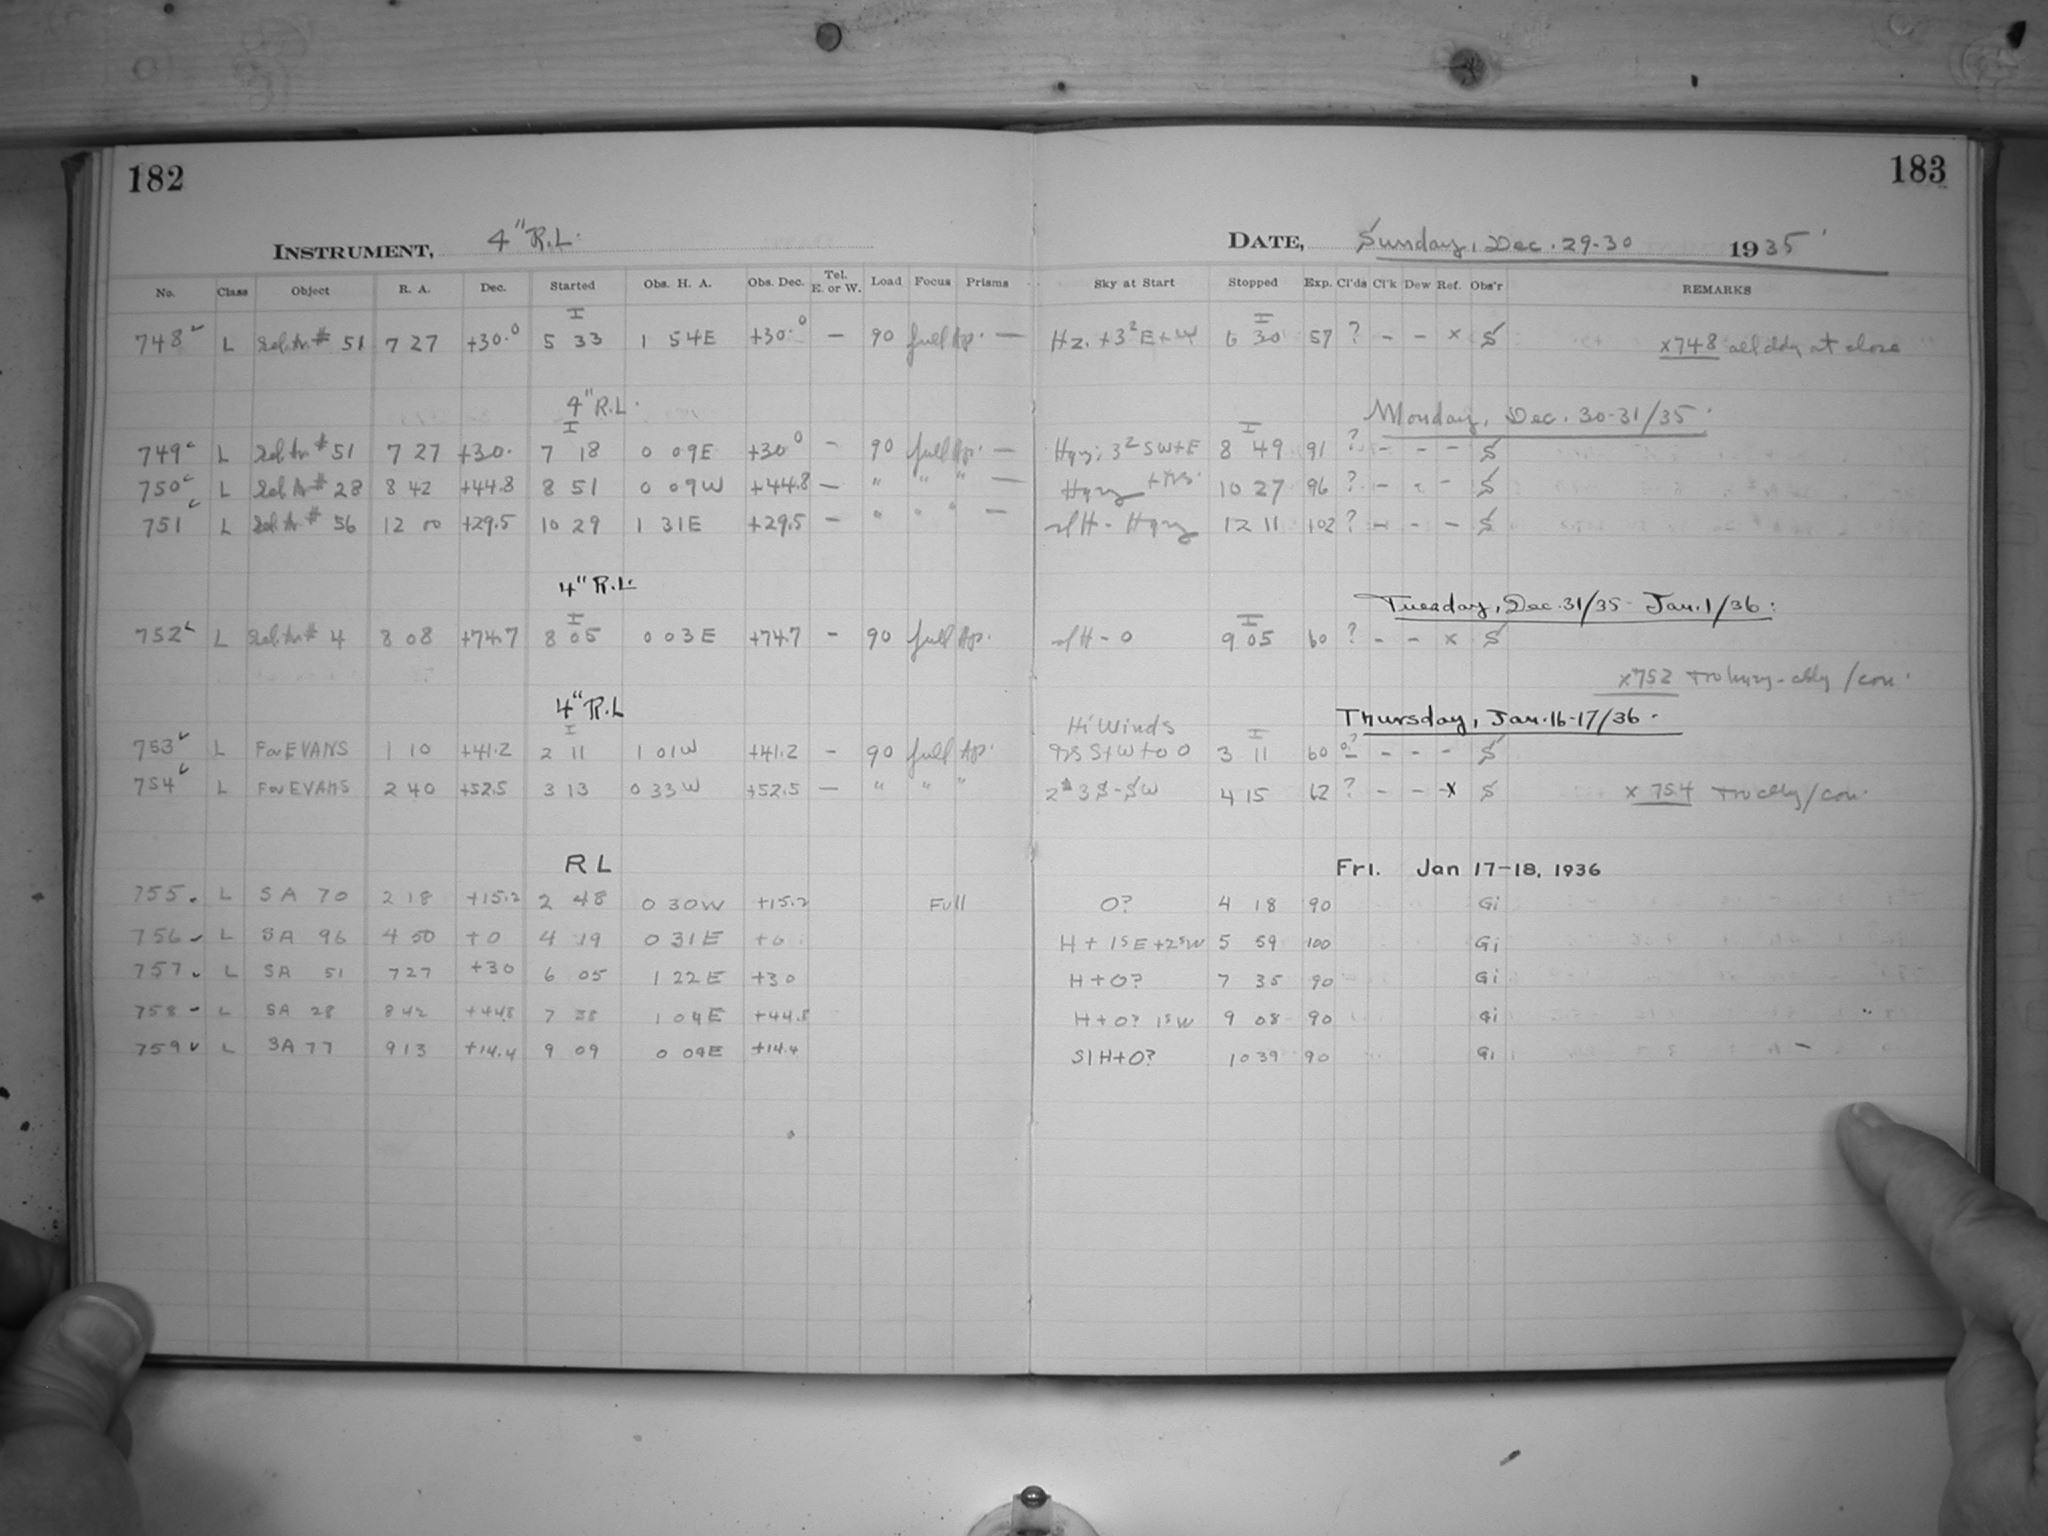 182
183
INSTRUMENT, 4" R.L.
DATE, Sunday, Dec. 29-30 1935
No. Class Object R. A. Dec. Started Obs. H. A. Obs. Dec. Tel. E. or W. Load Focus Prisms Sky at Start Stopped Exp. Cl'ds Cl'k Dew Ref. Obs'r REMARKS
I I
748 L Sel Ar # 51 7 27 +30.0 5 33 1 54E +30.0 — 90 full Ap. — Hz. +3² E+W 6 30 57 ? - - x S x748 all cldy at close
4" R.L. Monday, Dec. 30-31/35
I I
749 L Sel Ar # 51 7 27 +30. 7 18 0 09E +30° - 90 full Ap. — 3² SW+E 8 49 91 ? - - - S
750 L Sel Ar # 28 8 42 +44.8 8 51 0 09W +44.8 — " " " — 10 27 96 ? - - - S
751 L Sel Ar # 56 12 00 +29.5 10 29 1 31E +29.5 - " " " — 12 11 102 ? - - - S
4" R.L. Tuesday, Dec. 31/35 - Jan. 1/36
I I
752 L Sel Ar # 4 8 08 +74.7 8 05 0 03E +74.7 - 90 full Ap. sl H - 0 9 05 60 ? - - x S
x752
4" R.L Thursday, Jan. 16-17/36
I Hi Winds I
753 L For EVANS 1 10 +41.2 2 11 1 01W +41.2 - 90 full Ap. 3 11 60 - - - S
754 L For EVANS 2 40 +52.5 3 13 0 33W +52.5 — " " " 3 S-SW 4 15 62 ? - - x S x 754
R L Fri. Jan 17-18, 1936
755 L SA 70 2 18 +15.2 2 48 0 30W +15.2 Full O? 4 18 90 Gi
756 L SA 96 4 50 +0 4 19 0 31E +0 H + 1⁵E +2⁵W 5 59 100 Gi
757 L SA 51 7 27 +30 6 05 1 22E +30 H+O? 7 35 90 Gi
758 L SA 28 8 42 +44.8 7 38 1 04E +44.8 H+O? 1⁵W 9 08 90 Gi
759 L SA 77 9 13 +14.4 9 09 0 09E +14.4 Sl H+O? 10 39 90 Gi